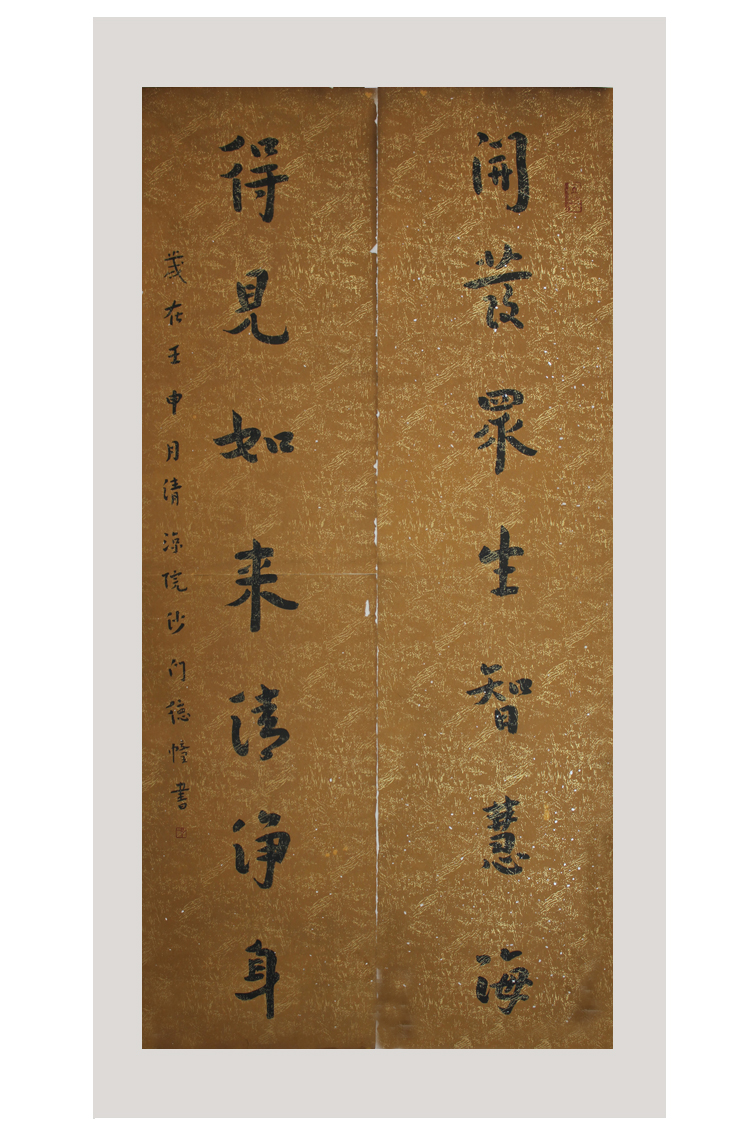 開發眾生智慧海
得見如来清净身
歲在壬申月清涼院沙门德書